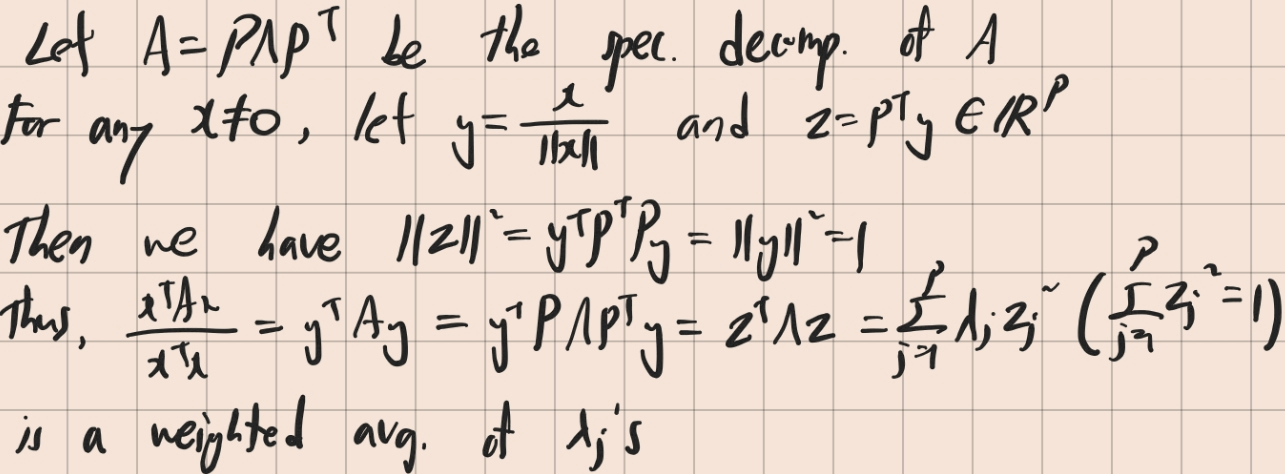 Let A = PΛPᵀ be the spec. decomp. of A
For any x≠0, let y = x/||x|| and z = Pᵀy ∈ ℝᵖ
Then we have ||z||² = yᵀPᵀPy = ||y||² = 1
Thus, xᵀAx/xᵀx = yᵀAy = yᵀPΛPᵀy = zᵀΛz = ∑ⱼ₌₁ᵖ λⱼzⱼ² (∑ⱼ₌₁ᵖ zⱼ² = 1)
is a weighted avg. of λⱼ's